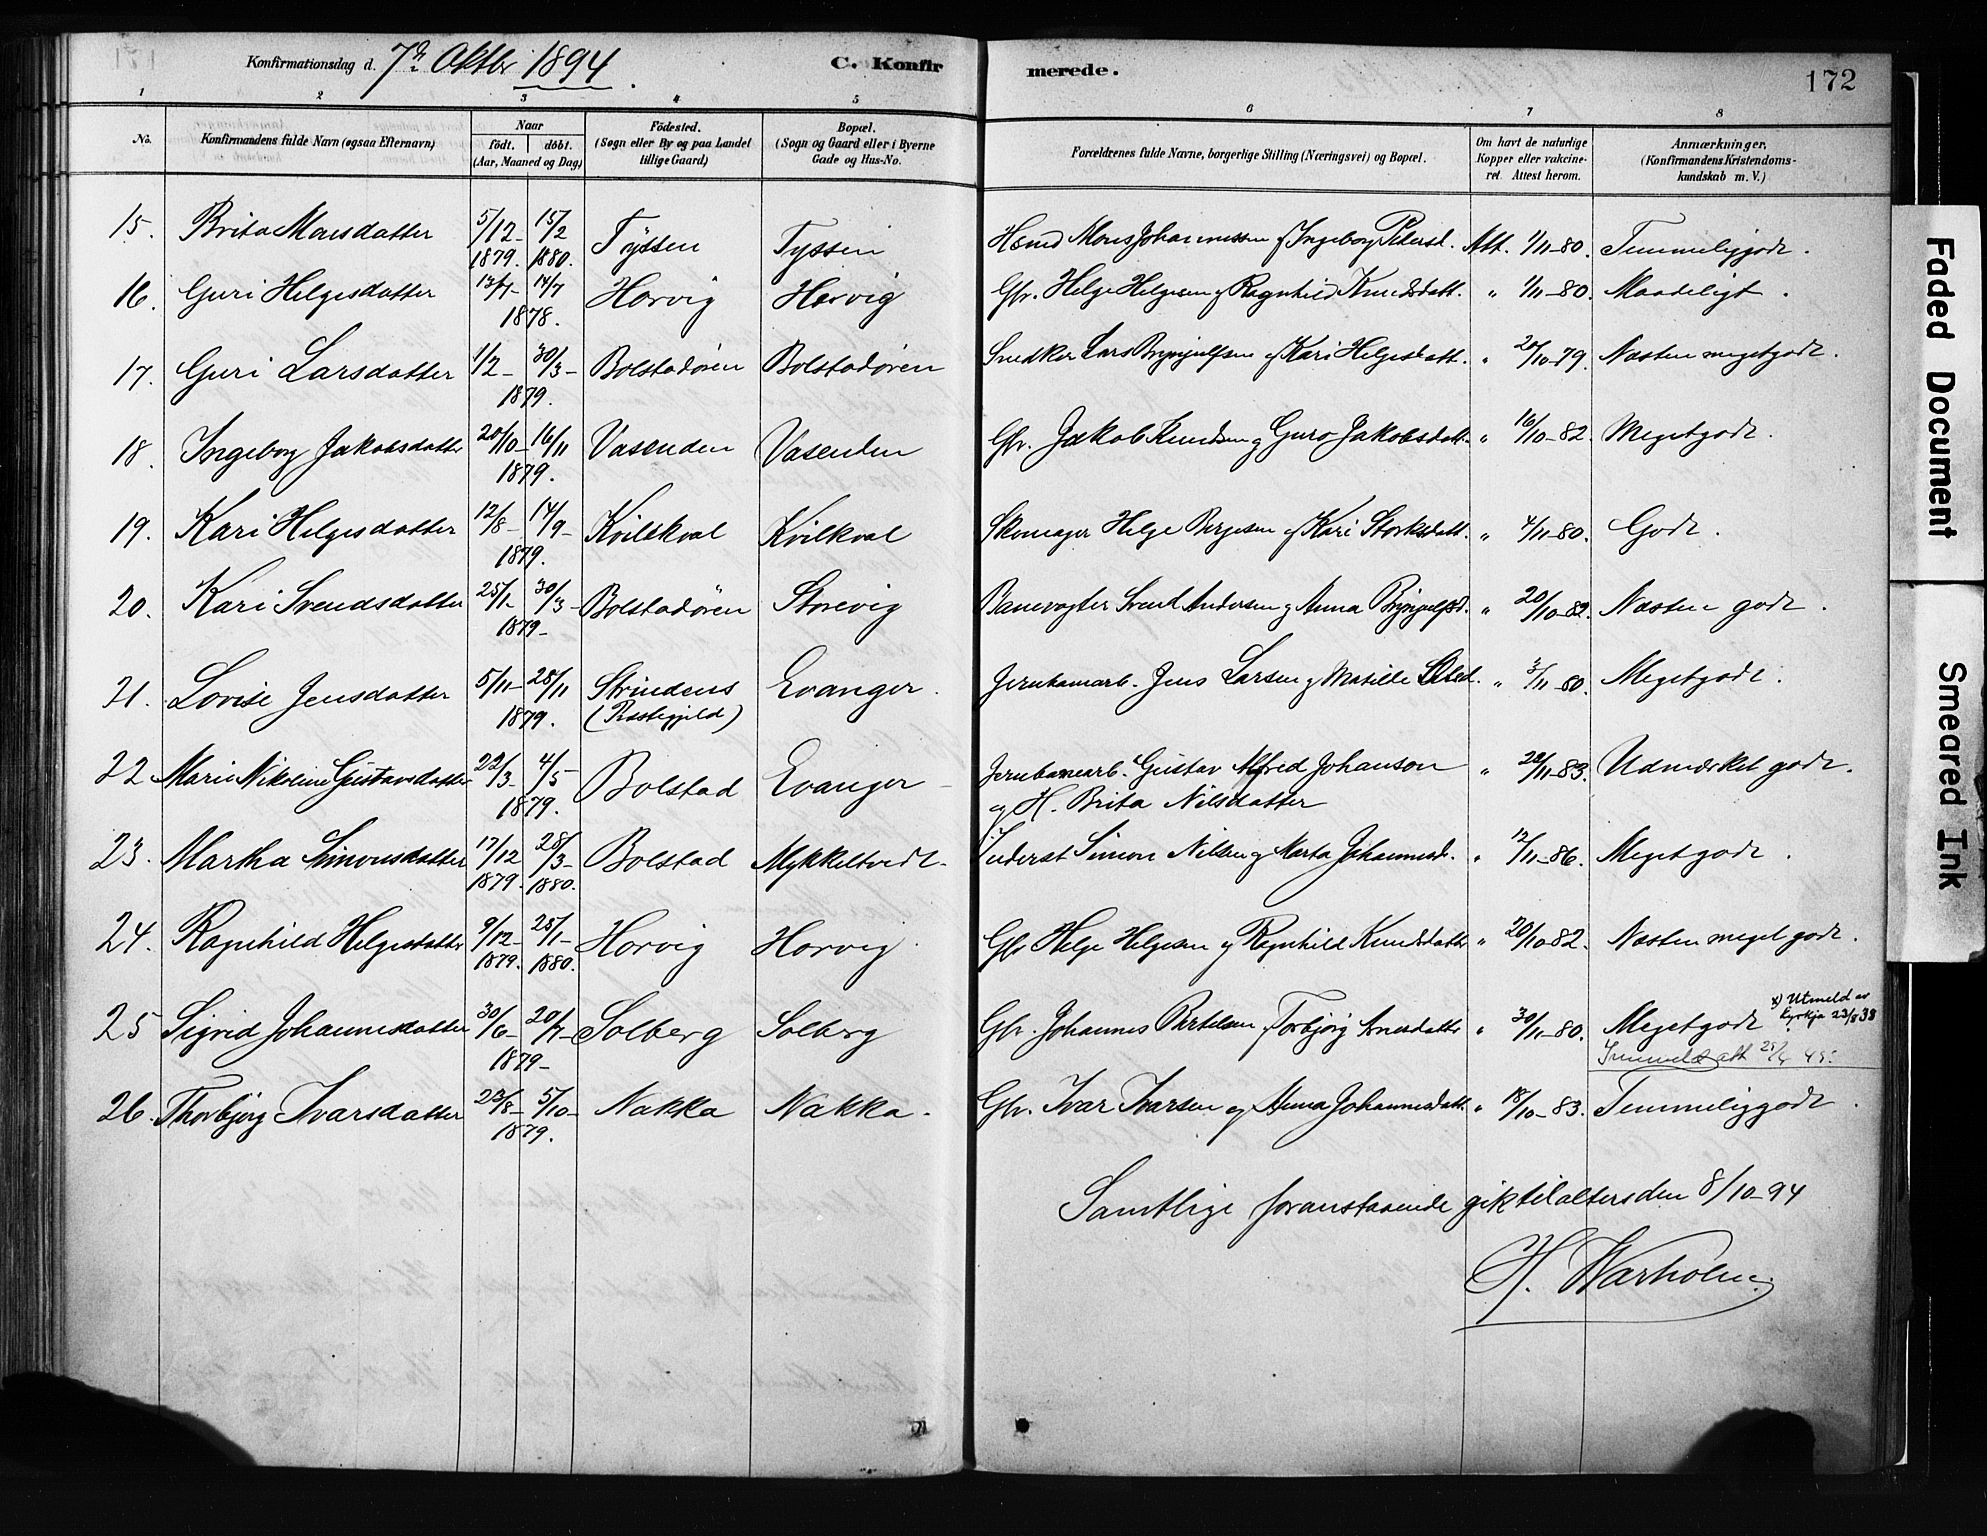 Konfirmationsdag d. 7de Oktbr 1894.
C. Konfirmerede.
172
1 2 3 4 5 6 7 8
No.
Konfirmandens fulde Navn (ogsaa Efternavn)
Naar
født. døbt.
(Aar, Maaned og Dag)
Fødested.
(Sogn eller By og paa Landet
tillige Gaard)
Bopæl.
(Sogn og Gaard eller i Byerne
Gade og Hus-No.
Forældrenes fulde Navne, borgerlige Stilling (Næringsvei) og Bopæl.
Om havt de naturlige
Kopper eller vakcine-
ret. Attest herom.
Anmærkninger.
(Konfirmandens Kristendoms-
kundskab m. V.)
15. Brita Monsdatter 5/12- 1879. 15/2 1880. Tyssen Tyssen Hsmd Mons Johannessen & Ingeborg Pedersd. Att. 1/11-80. Temmelig godt.
16. Guri Helgesdatter 13/7- 14/7 1878. Horvig Horvig Gbr. Helge Helgesen og Ragnhild Knudsdatt. " 1/11-80. Maadeligt.
17. Guri Larsdatter 1/2- 30/3- 1879. Bolstadøren Bolstadøren Snedker Lars Brynjulfsen & Kari Helgesdatt. " 20/10-79. Næsten meget godt.
18. Ingeborg Jakobsdatter 20/10- 16/11 1879. Vasenden Vasenden Gbr. Jakob Knudsen og Guro Jakobsdatt. " 16/10-82. Meget godt.
19. Kari Helgesdatter 12/8- 14/9- 1879. Kvilekval Kvilkval Skomager Helge Bergesen & Kari Storksdatt. " 4/11-80. Godt.
20. Kari Svendsdatter 25/1- 30/3- 1879- Bolstadøren Storevig Banevogter Svend Andersen og Anna Brynjulfsd. " 20/10-82. Næsten godt.
21. Lovise Jensdatter 5/11- 28/11 1879. Strindens (Præstegjeld) Evanger. Jernbanearb. Jens Larsen og Matilde Olsd. " 3/11-80. Meget godt.
22 Marie Nikoline Gustavsdatter 22/3- 4/5 1879. Bolstad Evanger Jernbanearb. Gustav Alfred Johanson " 22/11-83. Udmærket godt.
og H. Brita Nilsdatter
23. Martha Simonsdatter 17/12 1879. 28/3- 1880. Bolstad Mykkeltvedt- Inderst Simon Nilsen og Marta Johannesd. " 12/11-86. Meget godt.
24. Ragnhild Helgesdatter 9/12- 1879. 25/1- 1880. Horvig Horvig. Gbr Helge Helgesen og Ragnhild Knudsdatter " 20/10-82. Næsten meget godt.
25 Sigrid Johannesdatter 30/6- 20/7- 1879- Solberg Solberg Gbr. Johannes Bertelsen & Torbjørg Arnesdatter " 30/11-80. Meget godt x) Utmeld av
kyrkja 23/8 38
Innmeld att 25/4 45.
26. Thorbjørg Ivarsdatter 23/8- 5/10- 1879. Nakka Nakka. Gbr. Ivar Ivarsen og Anna Johannesdatt. " 18/10-83. Temmelig godt.
Samtlige foranstaaende gik til alters den 8/10-94
H. Warholm.
Faded Document
Smeared Ink